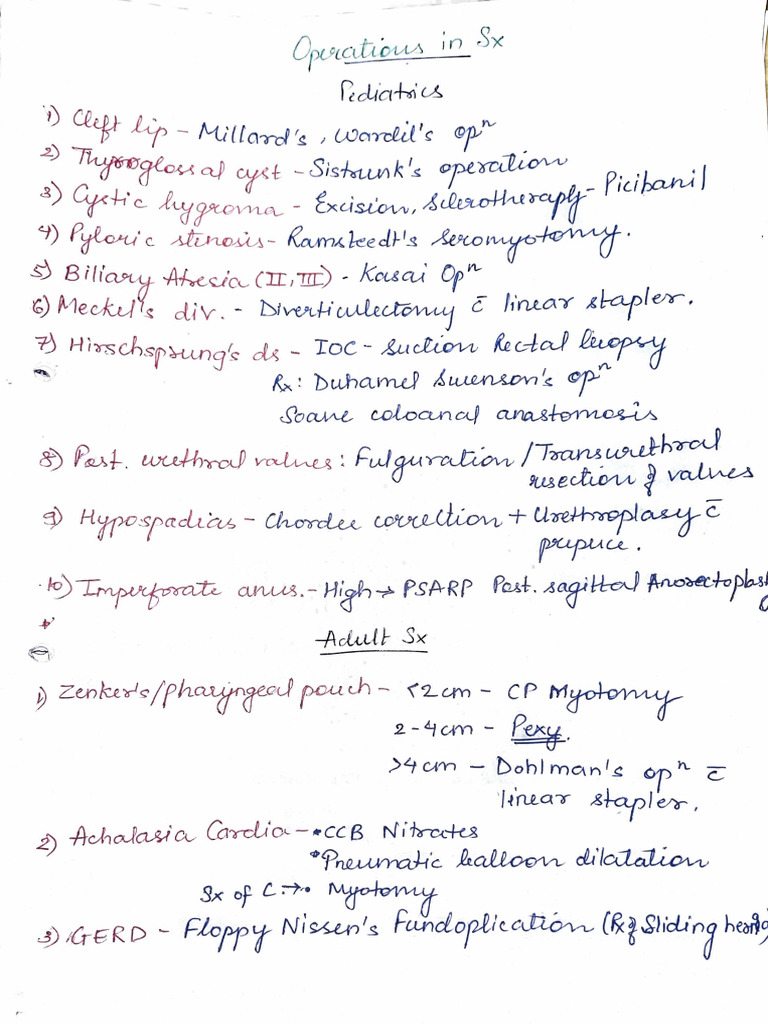 Operations in Sx
Pediatrics
1) Cleft lip - Millard's, Wardil's opⁿ
2) Thyroglossal cyst - Sistrunk's operation
3) Cystic hygroma - Excision, Sclerotherapy - Picibanil
4) Pyloric stenosis - Ramsteedt's Seromyotomy.
5) Biliary Atresia (II, III) - Kasai Opⁿ
6) Meckel's div. - Diverticulectomy c̄ linear stapler.
7) Hirschsprung's ds - IOC - Suction Rectal biopsy
Rx: Duhamel Swenson's opⁿ
Soane coloanal anastomosis
8) Post. urethral values: Fulguration / Transurethral
resection of values
9) Hypospadias - Chordee correction + Urethroplasy c̄
prepuce.
10) Imperforate anus. - High → PSARP Post. sagittal Anorectoplasty
Adult Sx
1) Zenker's/pharyngeal pouch - <2cm - CP Myotomy
2-4cm - Pexy.
>4cm - Dohlman's opⁿ c̄
linear stapler.
2) Achalasia Cardia - •CCB Nitrates
•Pneumatic balloon dilatation
Sx of C.→• Myotomy
3) GERD - Floppy Nissen's Fundoplication (Rx of Sliding